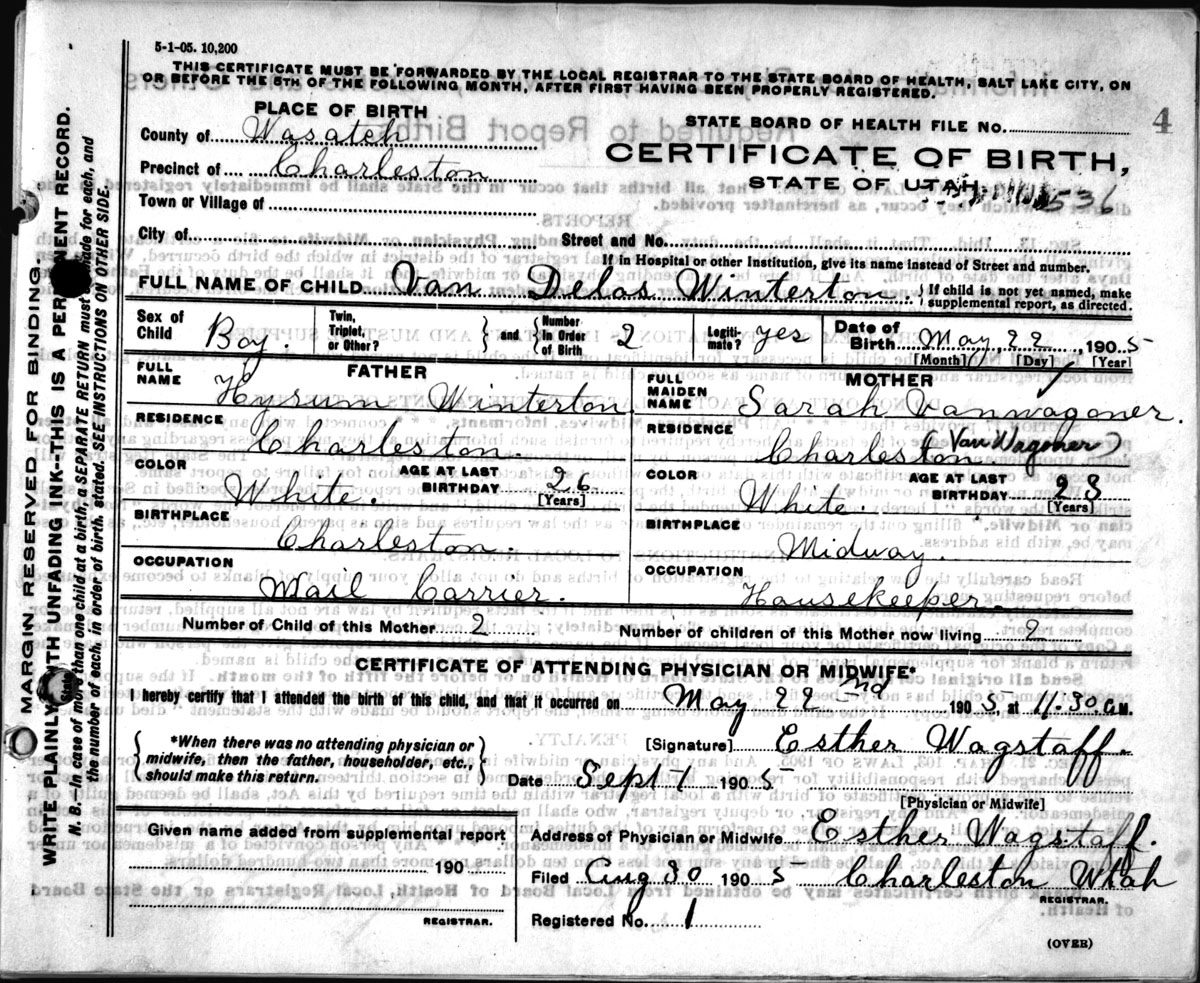 5-1-05. 10,200
THIS CERTIFICATE MUST BE FORWARDED BY THE LOCAL REGISTRAR TO THE STATE BOARD OF HEALTH, SALT LAKE CITY, ON
OR BEFORE THE 5TH OF THE FOLLOWING MONTH, AFTER FIRST HAVING BEEN PROPERLY REGISTERED.
4
PLACE OF BIRTH
STATE BOARD OF HEALTH FILE NO.
County of Wasatch
CERTIFICATE OF BIRTH,
Precinct of Charleston
STATE OF UTAH.
536
Town or Village of
City of
Street and No.
If in Hospital or other Institution, give its name instead of Street and number.
FULL NAME OF CHILD Van Delos Winterton. { If child is not yet named, make
supplemental report, as directed.
Sex of Child Boy. Twin, Triplet, or Other? } and { Number in Order of Birth 2 Legiti- mate? yes Date of Birth May 22, 1905
[Month] [Day] [Year]
FATHER
MOTHER
FULL NAME Hyrum Winterton
FULL MAIDEN NAME Sarah Vanwagoner.
RESIDENCE Charleston.
RESIDENCE Charleston. (Van Wagoner)
COLOR White. AGE AT LAST BIRTHDAY 26 [Years]
COLOR White. AGE AT LAST BIRTHDAY 23 [Years]
BIRTHPLACE Charleston.
BIRTHPLACE Midway.
OCCUPATION Mail Carrier.
OCCUPATION Housekeeper.
Number of Child of this Mother 2 Number of children of this Mother now living 2
CERTIFICATE OF ATTENDING PHYSICIAN OR MIDWIFE*
I hereby certify that I attended the birth of this child, and that it occurred on May 22nd 1905, at 11.30 a.M.
{ *When there was no attending physician or
midwife, then the father, householder, etc.,
should make this return. }
[Signature] Esther Wagstaff.
Date Sept 1 1905
[Physician or Midwife]
Given name added from supplemental report
190
REGISTRAR.
Address of Physician or Midwife Esther Wagstaff.
Filed Aug 30 1905 Charleston Utah
REGISTRAR.
Registered No. 1
(OVER)
MARGIN RESERVED FOR BINDING.
WRITE PLAINLY WITH UNFADING INK--THIS IS A PERMANENT RECORD.
N. B.--In case of more than one child at a birth, a SEPARATE RETURN must be made for each, and
the number of each, in order of birth, stated. SEE INSTRUCTIONS ON OTHER SIDE.